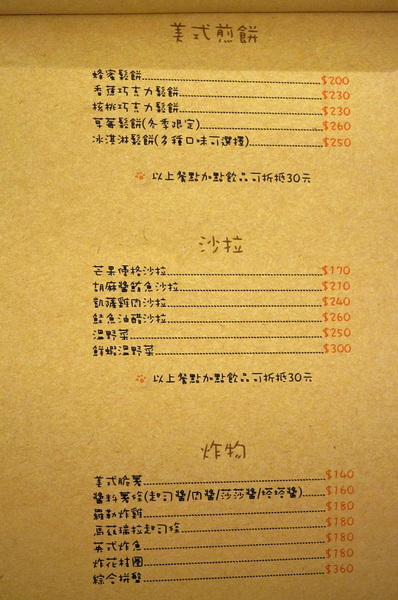 美式煎餅
蜂蜜鬆餅 $200
香蕉巧克力鬆餅 $230
核桃巧克力鬆餅 $230
草莓鬆餅(冬季限定) $260
冰淇淋鬆餅(多種口味可選擇) $250
以上餐點加點飲品可折抵30元
沙拉
芒果優格沙拉 $170
胡麻醬鮪魚沙拉 $210
凱薩雞肉沙拉 $240
鮭魚油醋沙拉 $260
溫野菜 $250
鮮蝦溫野菜 $300
以上餐點加點飲品可折抵30元
炸物
美式脆薯 $140
醬料薯條(起司醬/肉醬/莎莎醬/塔塔醬) $160
羅勒炸雞 $180
馬茲瑞拉起司條 $180
英式炸魚 $180
炸花枝圈 $180
綜合拼盤 $360